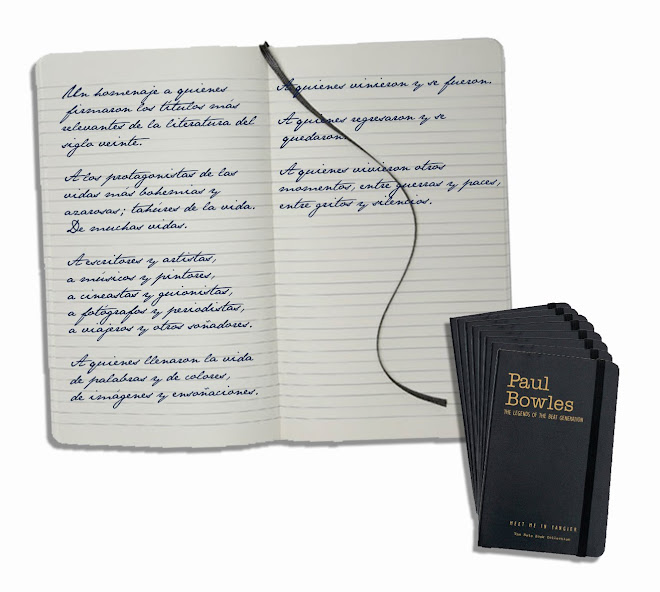 Un homenaje a quienes
firmaron los títulos más
relevantes de la literatura del
siglo veinte.
A los protagonistas de las
vidas más bohemias y
azarosas; tahúres de la vida.
De muchas vidas.
A escritores y artistas,
a músicos y pintores,
a cineastas y guionistas,
a fotógrafos y periodistas,
a viajeros y otros soñadores.
A quienes llenaron la vida
de palabras y de colores,
de imagenes y ensoñaciones.
A quienes vinieron y se fueron.
A quienes regresaron y se
quedaron.
A quienes vivieron otros
momentos, entre guerras y paces,
entre gritos y silencios.
Paul
Bowles
THE LEGENDS OF THE BEAT GENERATION
MEET ME IN TANGIER
The Note Book Collection